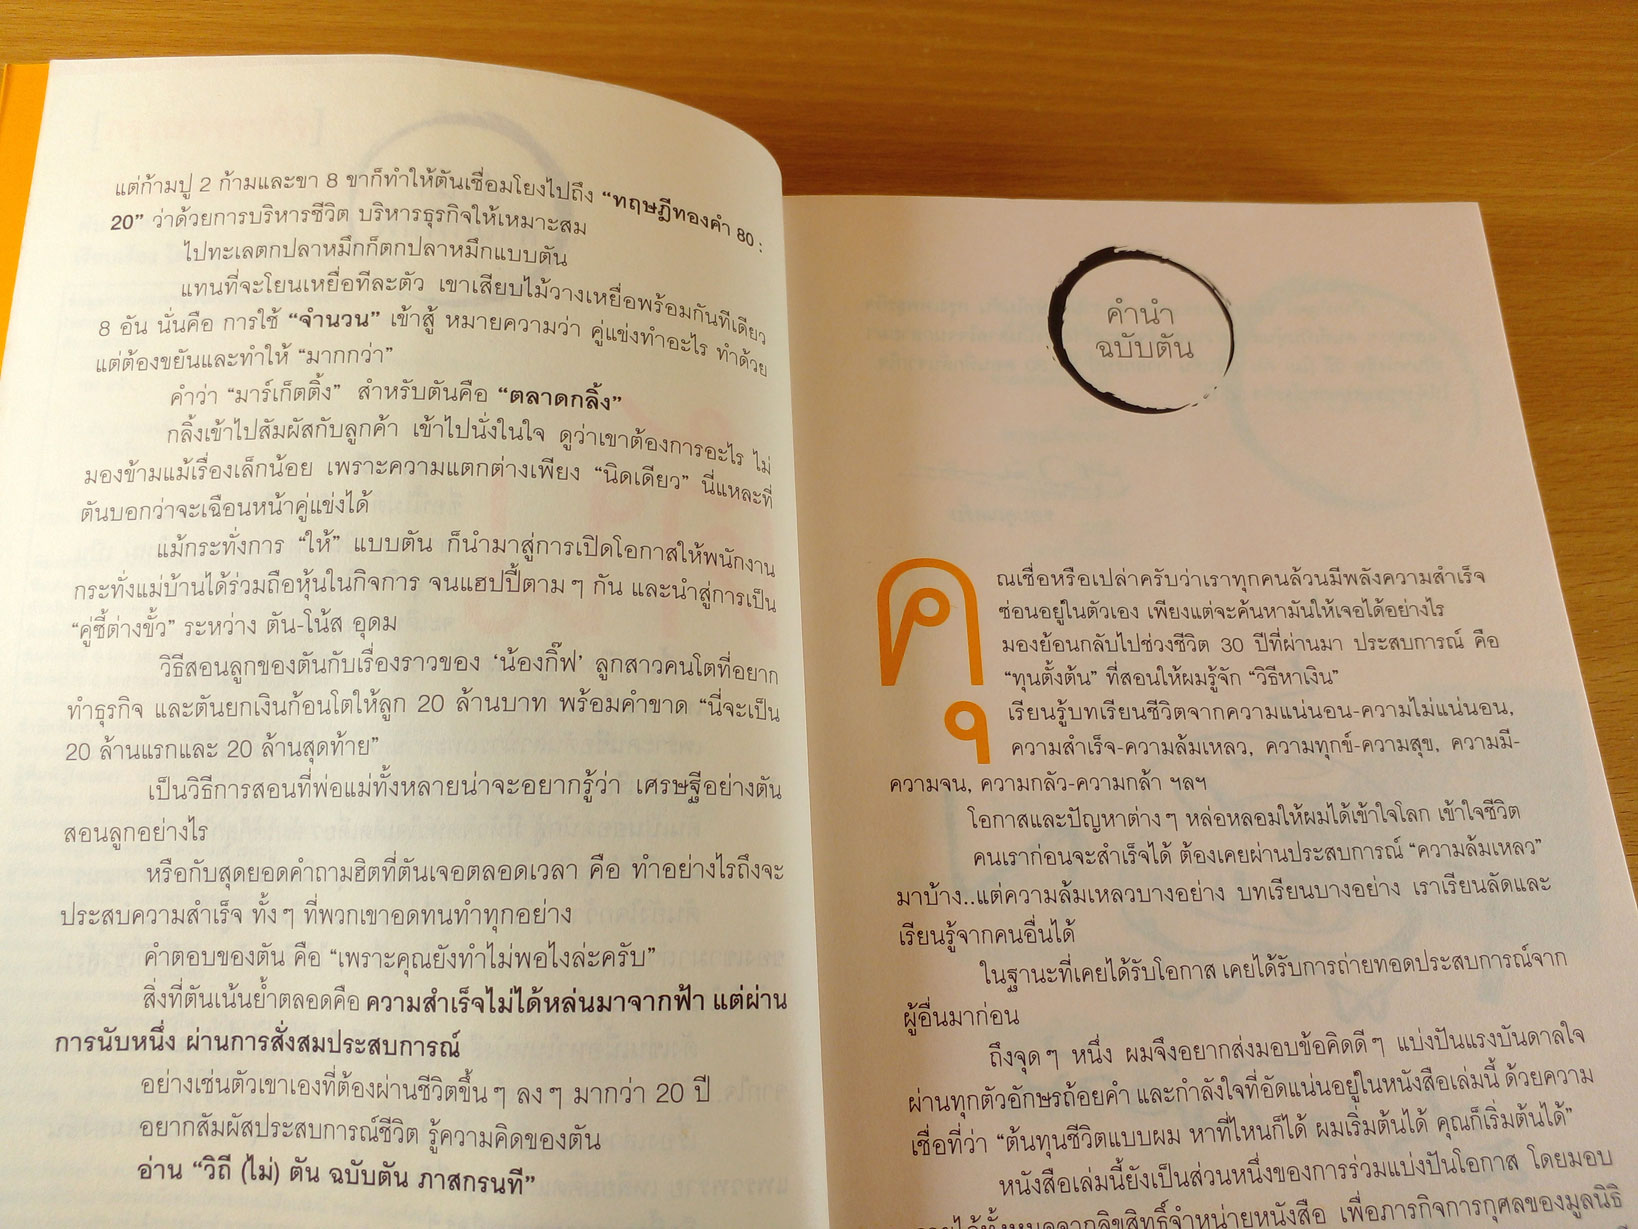 แต่ก้ามปู 2 ก้ามและขา 8 ขาก็ทำให้ตันเชื่อมโยงไปถึง “ทฤษฎีทองคำ 80 :
20” ว่าด้วยการบริหารชีวิต บริหารธุรกิจให้เหมาะสม
ไปทะเลตกปลาหมึกก็ตกปลาหมึกแบบตัน
แทนที่จะโยนเหยื่อทีละตัว เขาเสียบไม้วางเหยื่อพร้อมกันทีเดียว
8 อัน นั่นคือ การใช้ “จำนวน” เข้าสู้ หมายความว่า คู่แข่งทำอะไร ทำด้วย
แต่ต้องขยันและทำให้ “มากกว่า”
คำว่า “มาร์เก็ตติ้ง” สำหรับตันคือ “ตลาดกลิ้ง”
กลิ้งเข้าไปสัมผัสกับลูกค้า เข้าไปนั่งในใจ ดูว่าเขาต้องการอะไร ไม่
มองข้ามแม้เรื่องเล็กน้อย เพราะความแตกต่างเพียง “นิดเดียว” นี่แหละที่
ตันบอกว่าจะเฉือนหน้าคู่แข่งได้
แม้กระทั่งการ “ให้” แบบตัน ก็นำมาสู่การเปิดโอกาสให้พนักงาน
กระทั่งแม่บ้านได้ร่วมถือหุ้นในกิจการ จนแฮปปี้ตามๆ กัน และนำสู่การเป็น
“คู่ซี้ต่างขั้ว” ระหว่าง ตัน-โน้ส อุดม
วิธีสอนลูกของตันกับเรื่องราวของ ‘น้องกิ๊ฟ’ ลูกสาวคนโตที่อยาก
ทำธุรกิจ และตันยกเงินก้อนโตให้ลูก 20 ล้านบาท พร้อมคำขาด “นี่จะเป็น
20 ล้านแรกและ 20 ล้านสุดท้าย”
เป็นวิธีการสอนที่พ่อแม่ทั้งหลายน่าจะอยากรู้ว่า เศรษฐีอย่างตัน
สอนลูกอย่างไร
หรือกับสุดยอดคำถามฮิตที่ตันเจอตลอดเวลา คือ ทำอย่างไรถึงจะ
ประสบความสำเร็จ ทั้งๆ ที่พวกเขาอดทนทำทุกอย่าง
คำตอบของตัน คือ “เพราะคุณยังทำไม่พอไงล่ะครับ”
สิ่งที่ตันเน้นย้ำตลอดคือ ความสำเร็จไม่ได้หล่นมาจากฟ้า แต่ผ่าน
การนับหนึ่ง ผ่านการสั่งสมประสบการณ์
อย่างเช่นตัวเขาเองที่ต้องผ่านชีวิตขึ้นๆ ลงๆ มากว่า 20 ปี
อยากสัมผัสประสบการณ์ชีวิต รู้ความคิดของตัน
อ่าน “วิถี (ไม่) ตัน ฉบับตัน ภาสกรนที”
คำนำ
ฉบับตัน
คุณเชื่อหรือเปล่าครับว่าเราทุกคนล้วนมีพลังความสำเร็จ
ซ่อนอยู่ในตัวเอง เพียงแต่จะค้นหามันให้เจอได้อย่างไร
มองย้อนกลับไปช่วงชีวิต 30 ปีที่ผ่านมา ประสบการณ์ คือ
“ทุนตั้งต้น” ที่สอนให้ผมรู้จัก “วิธีหาเงิน”
เรียนรู้บทเรียนชีวิตจากความแน่นอน-ความไม่แน่นอน,
ความสำเร็จ-ความล้มเหลว, ความทุกข์-ความสุข, ความมี-
ความจน, ความกลัว-ความกล้า ฯลฯ
โอกาสและปัญหาต่างๆ หล่อหลอมให้ผมได้เข้าใจโลก เข้าใจชีวิต
คนเราก่อนจะสำเร็จได้ ต้องเคยผ่านประสบการณ์ “ความล้มเหลว”
มาบ้าง..แต่ความล้มเหลวบางอย่าง บทเรียนบางอย่าง เราเรียนลัดและ
เรียนรู้จากคนอื่นได้
ในฐานะที่เคยได้รับโอกาส เคยได้รับการถ่ายทอดประสบการณ์จาก
ผู้อื่นมาก่อน
ถึงจุดๆ หนึ่ง ผมจึงอยากส่งมอบข้อคิดดีๆ แบ่งปันแรงบันดาลใจ
ผ่านทุกตัวอักษรถ้อยคำ และกำลังใจที่อัดแน่นอยู่ในหนังสือเล่มนี้ ด้วยความ
เชื่อที่ว่า “ต้นทุนชีวิตแบบผม หาที่ไหนก็ได้ ผมเริ่มต้นได้ คุณก็เริ่มต้นได้”
หนังสือเล่มนี้ยังเป็นส่วนหนึ่งของการร่วมแบ่งปันโอกาส โดยมอบ
รายได้ทั้งหมดจากลิขสิทธิ์จำหน่ายหนังสือ เพื่อภารกิจการกุศลของมูลนิธิ